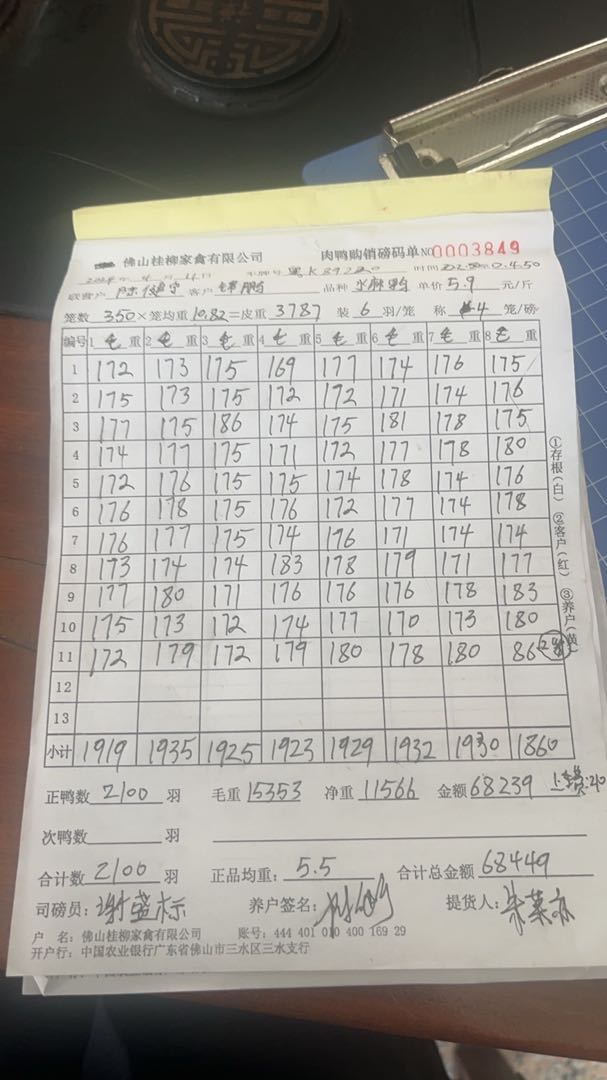 佛山桂柳家禽有限公司 肉鸭购销磅码单 NO 0003849
客户 品种 单价 5.9 元/斤
笼数 350 × 笼均重 10.82 = 皮重 3787 装 6 羽/笼 称 4 笼/磅
编号 1 毛 重 2 毛 重 3 毛 重 4 毛 重 5 毛 重 6 毛 重 7 毛 重 8 毛 重
1 172 173 175 169 177 174 176 175
2 175 173 175 172 172 171 174 176
3 177 175 186 174 175 181 178 175
4 174 177 175 171 172 177 178 180
5 172 176 175 175 174 178 174 176
6 176 178 175 176 172 177 174 178
7 176 177 175 174 176 171 174 174
8 173 174 174 183 178 179 171 177
9 177 180 171 176 176 176 178 183
10 175 173 172 174 177 170 173 180
11 172 179 172 179 180 178 180 86
12
13
小计 1919 1935 1925 1923 1929 1932 1930 1860
①存根(白) ②客户(红) ③养户(黄)
正鸭数 2100 羽 毛重 15353 净重 11566 金额 68239
次鸭数 羽
合计数 2100 羽 正品均重: 5.5 合计总金额 68449
司磅员: 谢蓝标 养户签名: 提货人:
户 名: 佛山桂柳家禽有限公司 账号: 444 401 010 400 169 29
开户行: 中国农业银行广东省佛山市三水区三水支行